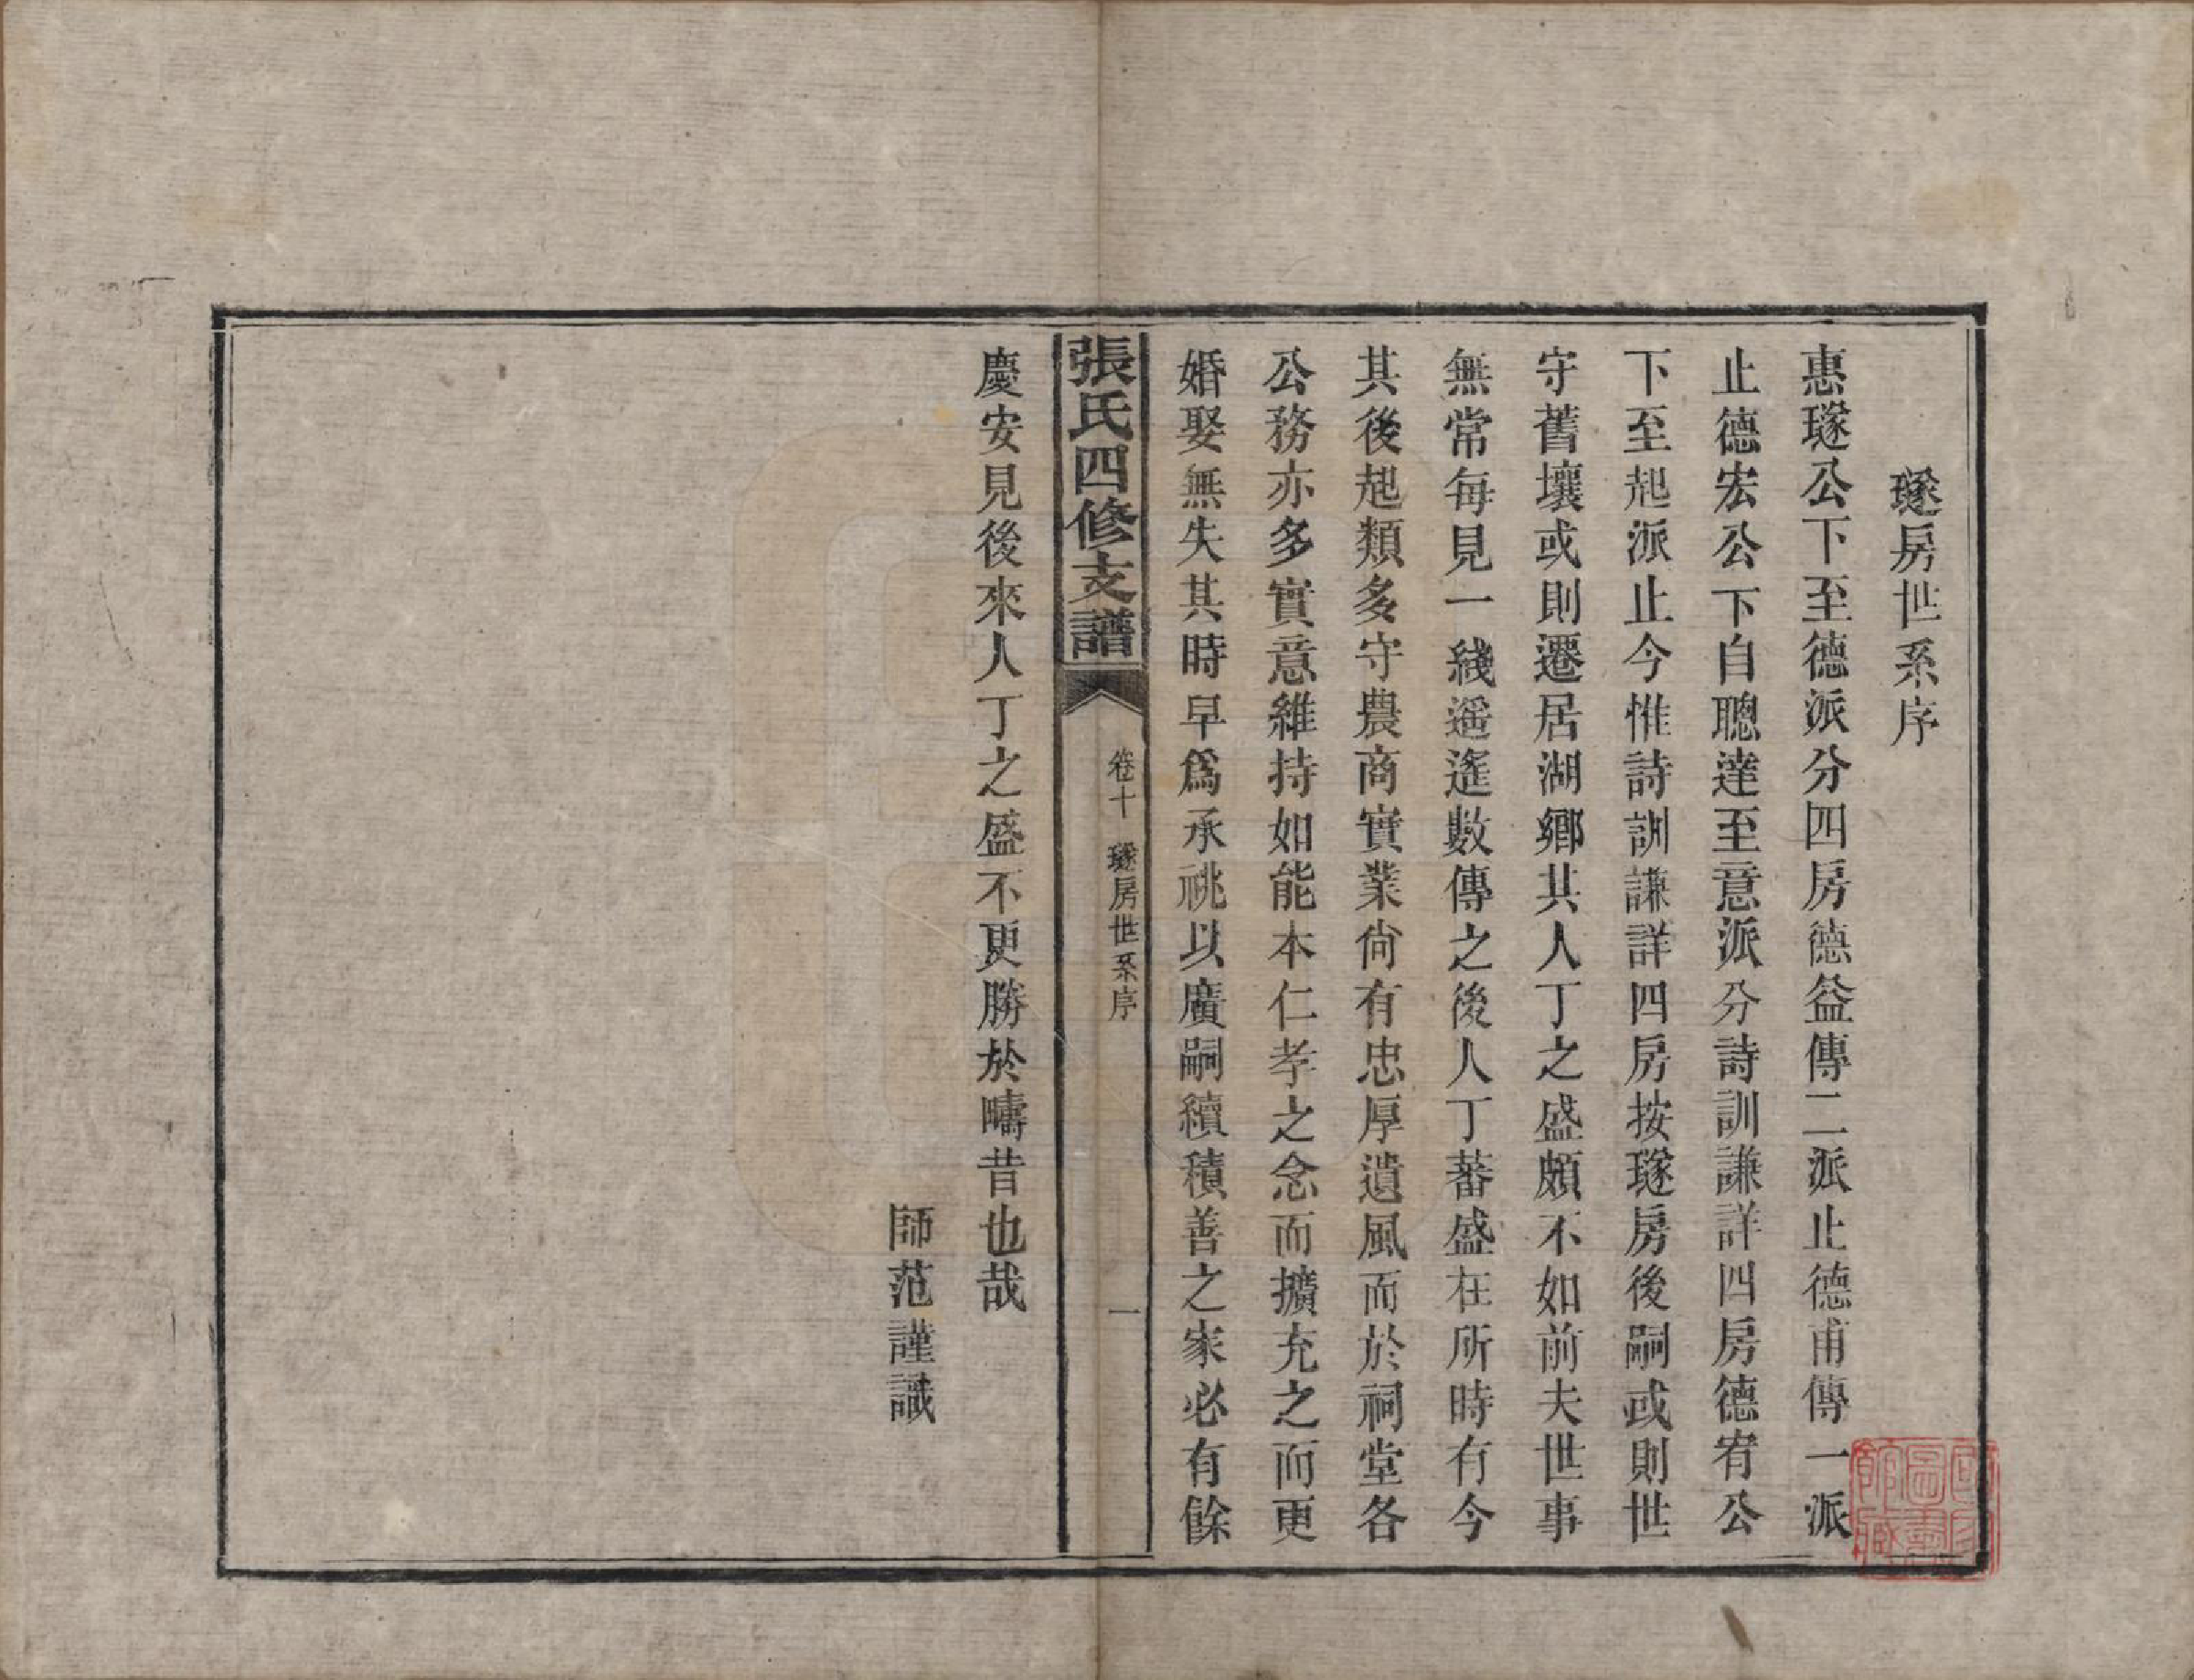 璲房世系序
惠璲公下至德派分四房德益傳二派止德甫傳一派
止德宏公下自聰達至意派分詩訓謙詳四房德宥公
下至起派止今惟詩訓謙詳四房按璲房後嗣或則世
守舊壤或則遷居湖鄉其人丁之盛頗不如前夫世事
無常每見一綫遥遙數傳之後人丁蕃盛在所時有今
其後起類多守農商實業尙有忠厚遺風而於祠堂各
公務亦多實意維持如能本仁孝之念而擴充之而更
婚娶無失其時早爲承祧以廣嗣續積善之家必有餘
張氏四修支譜
卷十 璲房世系序
一
慶安見後來人丁之盛不更勝於疇昔也哉
師范謹識